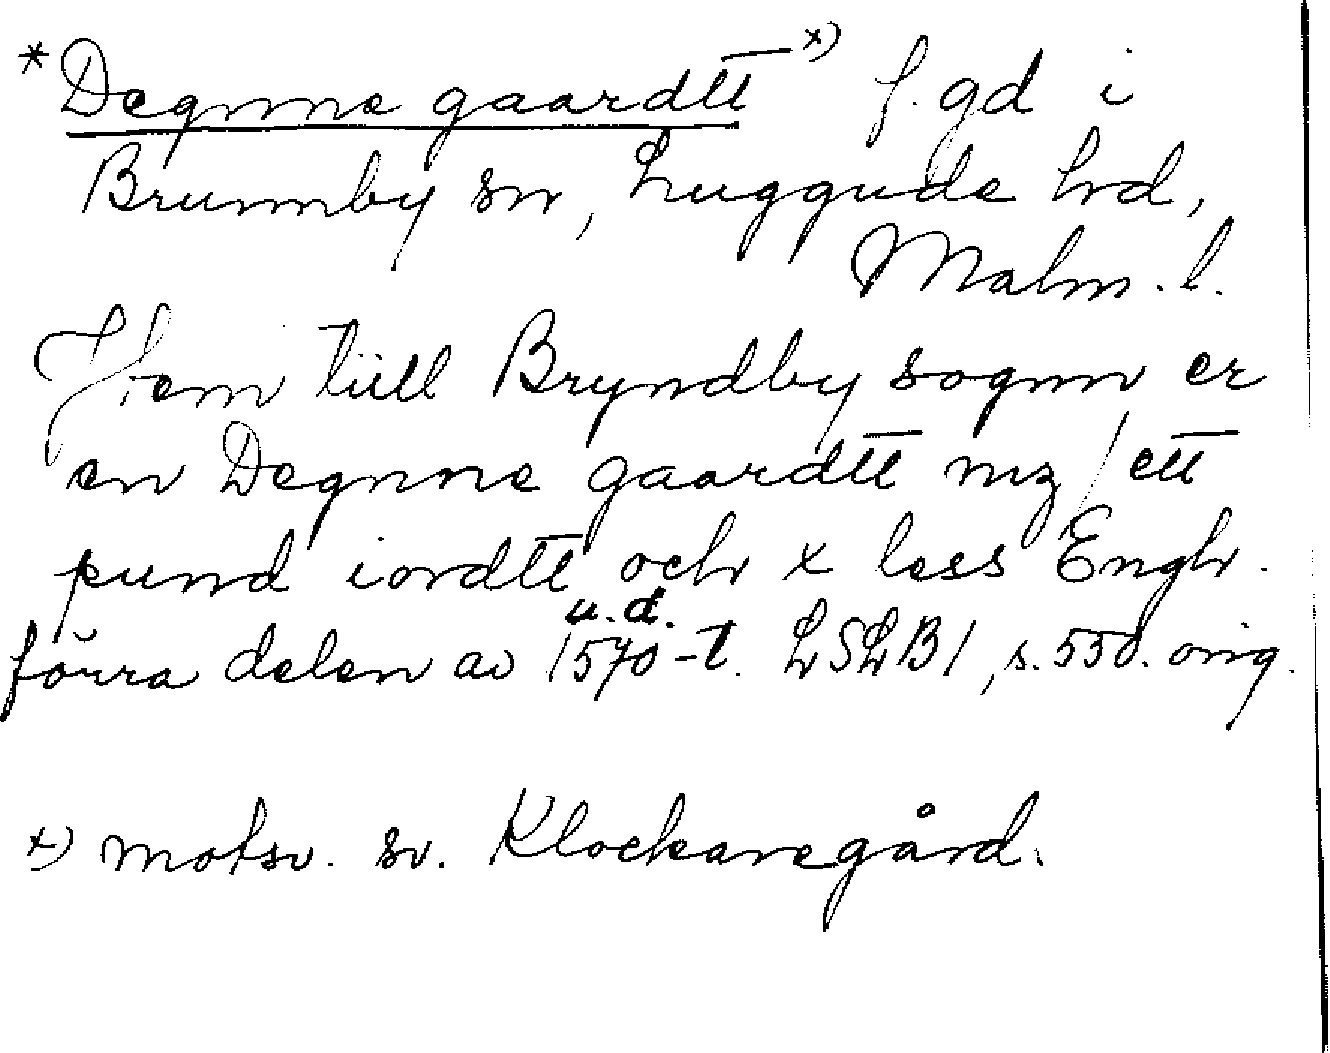 *Degnne gaardtt x) f. gd i
Brunnby sn, Luggude hd,
Malm. l.
Jtem tiill Bryndby sognn er
en Degnne gaardtt mz / ett
pund iordtt och x less Engh.
förra delen av u.d. 1570-t. LSLB1, s. 550. orig.
x) motsv. sv. Klockaregård.